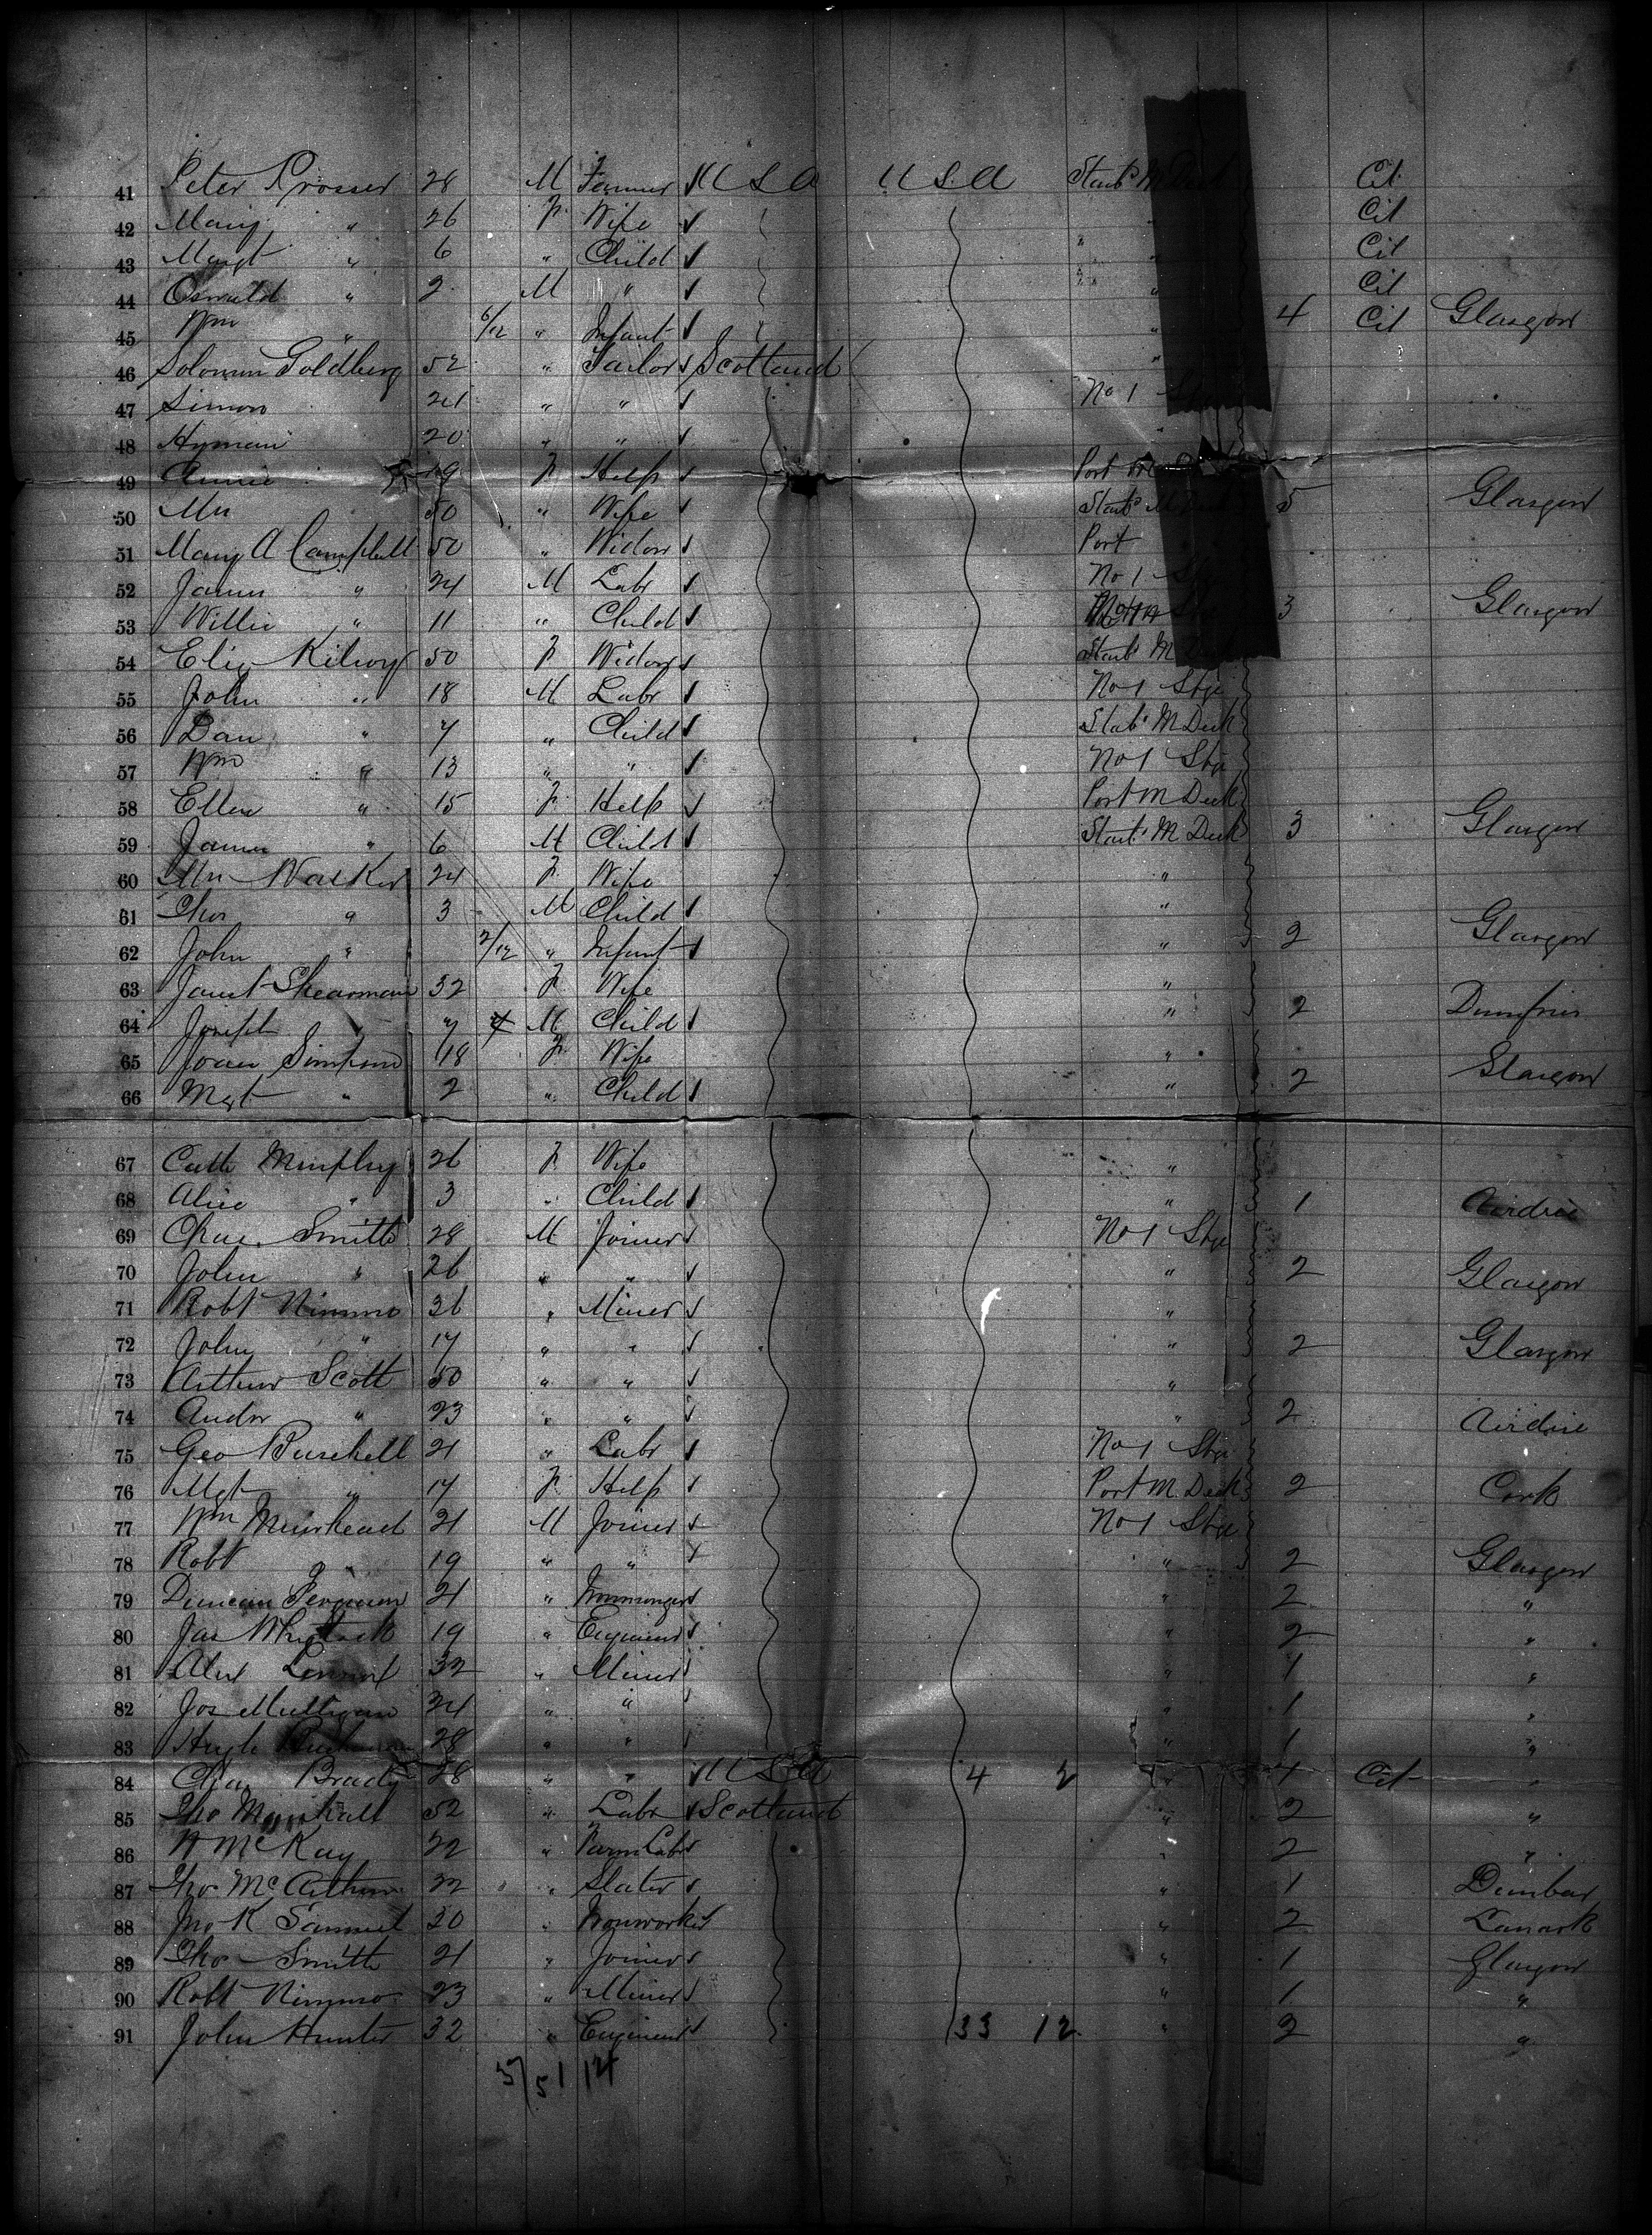 41 Peter Prosser 28 M Farmer USA USA Starb M Deck Cit
42 Mary " 26 F Wife " Cit
43 Margt " 6 " Child " " Cit
44 Oswald " 2 M " " " Cit
45 Wm " 6/12 " Infant " 4 Cit Glasgow
46 Solomon Goldberg 52 " Tailor Scotland "
47 Simon 24 " " No 1 Stge
48 Hyman 20 " " "
49 Annie 19 F Help Port M
50 Mrs 50 " Wife Starb M Deck 5 Glasgow
51 Mary A Campbell 50 " Widow Port
52 James " 24 M Labr No 1 Stge
53 Willie " 11 " Child 3 Glasgow
54 Eliz 50 F Widow Starb M
55 John " 18 M Labr No 1 Stge
56 Dan " 7 " Child Starb M Deck
57 Wm " 13 " " No 1 Stge
58 Ellen " 15 F Help Port M Deck
59 James " 6 M Child Starb M Deck 3 Glasgow
60 Mrs Walker 24 F Wife "
61 Thos " 3 M Child "
62 John " 2/12 " Infant " 2 Glasgow
63 Janet Shearman 32 F Wife "
64 Joseph " 7 M Child " 2 Dumfries
65 Simpson 18 F Wife "
66 Mgt " 2 " Child " 2 Glasgow
67 Cath Murphy 26 F Wife "
68 Alice " 3 " Child " 1 Airdrie
69 Chas. Smith 28 M Joiner No 1 Stge
70 John " 26 " " " 2 Glasgow
71 Robt Nimmo 36 " Miner "
72 John " 17 " " " 2 Glasgow
73 Arthur Scott 50 " " "
74 Andw " 23 " " " 2 Airdrie
75 Geo Burchell 21 " Labr No 1 Stge
76 Mgt " 17 F Help Port M Deck 2 Cork
77 Wm Muirhead 21 M Joiner No 1 Stge
78 Robt " 19 " " " 2 Glasgow
79 Duncan Ferguson 21 " Ironmonger " 2 "
80 Jas 19 " Engineer " 2 "
81 Alex Lennox 32 " Miner " 1 "
82 Jos Mulligan 24 " " " 1 "
83 Hugh 28 " " " 1 "
84 Chas Brady 28 " " USA 4 2 " 1 Cit "
85 Tho Marshall 52 " Labr Scotland " 2 "
86 W McKay 22 " Farm Labr " 2 "
87 Thos McArthur 22 " Slater " 1 Dunbar
88 Jno K Samuel 30 " Ironworker " 2 Lanark
89 Thos Smith 21 " Joiner " 1 Glasgow
90 Robt Nimmo 23 " Miner " 1 "
91 John Hunter 32 " Engineer 33 12 " 2 "